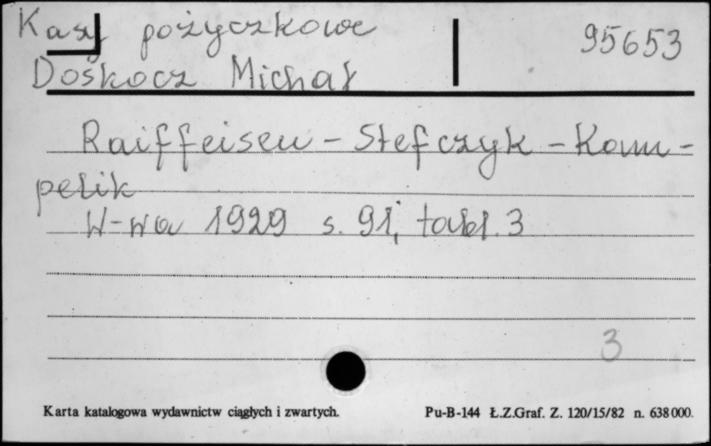 Kasy pożyczkowe 95653
Doskocz Michał
Raiffeisen - Stefczyk - Kom-
pelik
W-wa 1929 s. 91, tabl. 3
3
Karta katalogowa wydawnictw ciągłych i zwartych. Pu-B-144 Ł.Z.Graf. Z. 120/15/82 n. 638000.